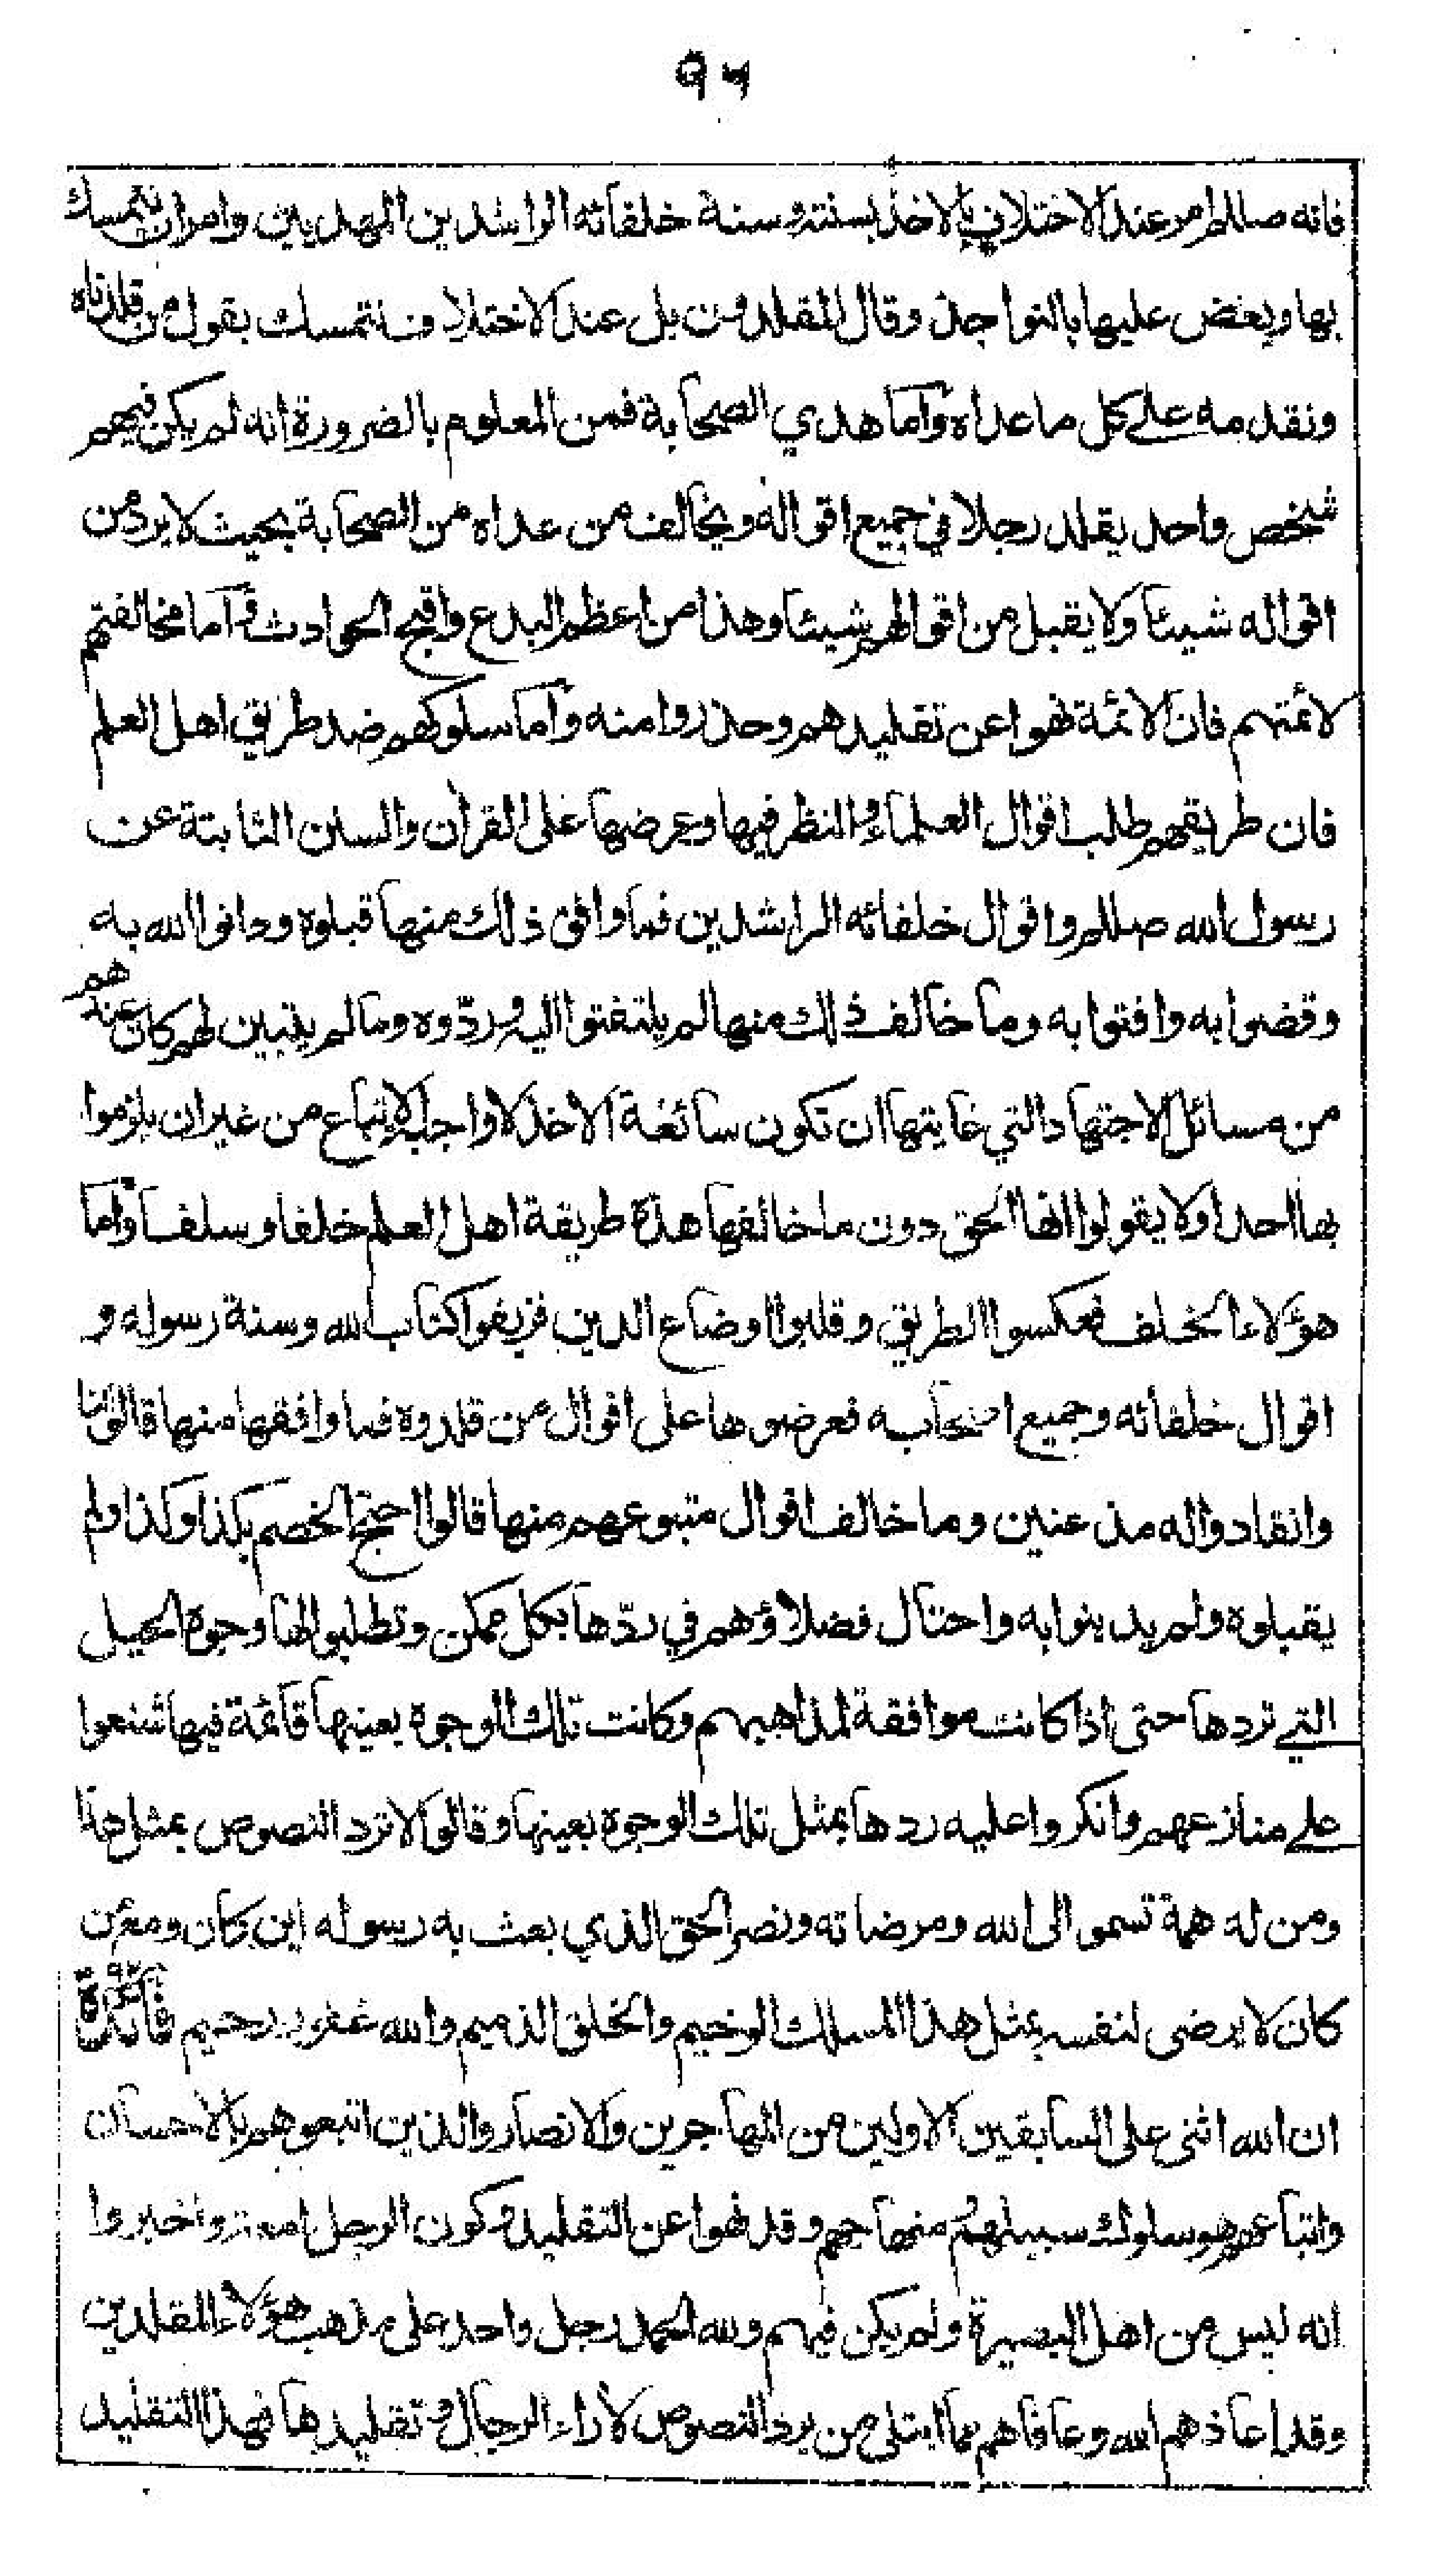 ٩٦
فانه صللم امر عند الاختلاف بالاخذ بسنته وسنة خلفائه الراشدين المهديين وامر ان نتمسك
بها ويعض عليها بالنواجذ وقال المقلدون بل عند الاختلاف نتمسك بقول من قلدناه
ونقدمه على كل ما عداه وآما هدي الصحابة فمن المعلوم بالضرورة انه لم يكن فيهم
شخص واحد يقلد رجلا في جميع اقواله ويخالف من عداه من الصحابة بحيث لا يرد من
اقواله شيئا ولا يقبل من اقوالهم شيئا وهذا من اعظم البدع واقبح الحوادث وآما مخالفتهم
لائمتهم فان الائمة نهوا عن تقليدهم وحذروا منه وآما سلوكهم ضد طريق اهل العلم
فان طريقهم طلب اقوال العلماء والنظر فيها وعرضها على القرآن والسنن الثابتة عن
رسول الله صللم واقوال خلفائه الراشدين فما وافق ذلك منها قبلوه ودانوا الله به
وقضوا به وافتوا به وما خالف ذلك منها لم يلتفتوا اليه وردّوه وما لم يتبين لهم كان عندهم
من مسائل الاجتهاد التي غايتها ان تكون سائغة الاخذ لا واجبة الاتباع من غير ان يلزموا
بها احدا ولا يقولوا انها الحق دون ما خالفها هذه طريقة اهل العلم خلفا وسلفا وآما
هؤلاء الخلف فعكسوا الطريق وقلبوا اوضاع الدين فزيفوا كتاب الله وسنة رسوله و
اقوال خلفائه وجميع اصحابه فعرضوها على اقوال من قلدوه فما وافقها منها قالوا لنا
وانقادوا له مذعنين وما خالف اقوال متبوعهم منها قالوا احتج الخصم بكذا وكذا ولم
يقبلوه ولم يدينوا به واحتال فضلاؤهم في ردّها بكل ممكن وتطلبوا لها وجوه الحيل
التي تردها حتى اذا كانت موافقة لمذاهبهم وكانت تلك الوجوه بعينها قائمة فيها شنعوا
على منازعهم وانكروا عليه ردها بمثل تلك الوجوه بعينها وقالوا لا ترد النصوص بمثل هذا
ومن له همة تسمو الى الله ومرضاته ونصر الحق الذي بعث به رسوله اين كان ومع من
كان لا يرضى لنفسه بمثل هذا المسلك الوخيم والخلق الذميم والله غفور رحيم فائدة
ان الله اثنى على السابقين الاولين من المهاجرين والانصار والذين اتبعوهم بالاحسان
واتباعهم هو سلوك سبيلهم ومنهاجهم وقد نهوا عن التقليد وكون الرجل امعة واخبروا
انه ليس من اهل البصيرة ولم يكن فيهم ولله الحمد رجل واحد على مذهب هؤلاء المقلدين
وقد اعاذهم الله وعافاهم مما ابتلى من يرد النصوص لآراء الرجال وتقليدها فهذا التقليد